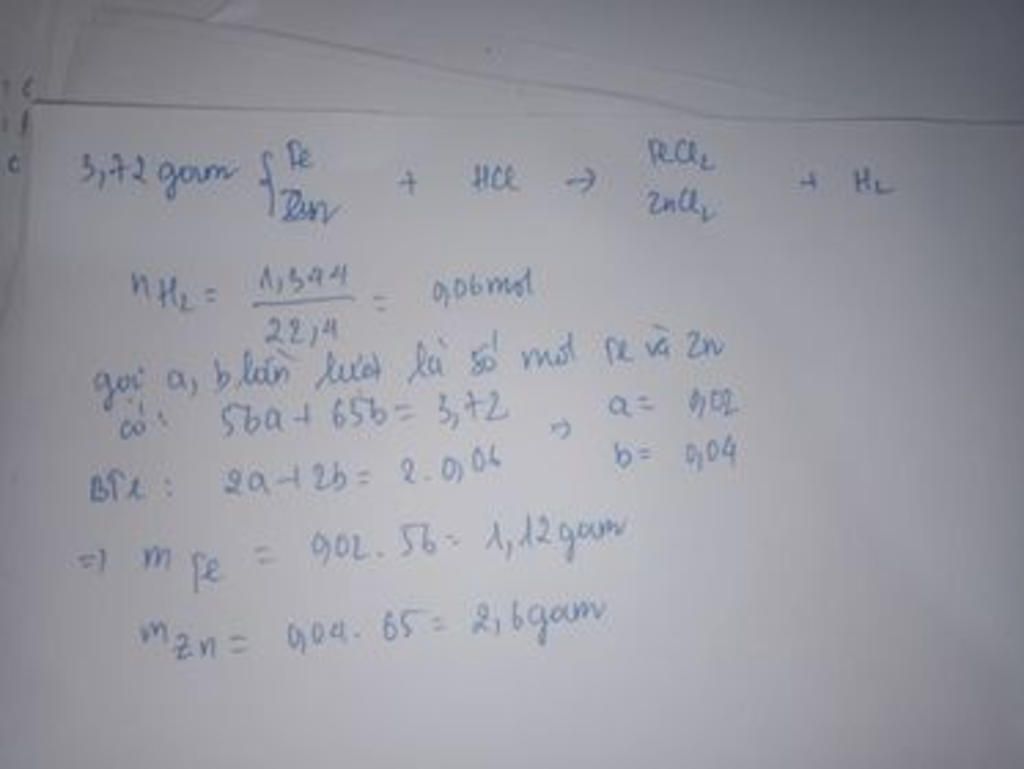 3,72 gam { Fe Zn + HCl → FeCl2 ZnCl2 + H2
nH2 = 1,344 / 22,4 = 0,06 mol
gọi a, b lần lượt là số mol Fe và Zn
có: 56a + 65b = 3,72 → a = 0,02
BTe: 2a + 2b = 2.0,06 b = 0,04
=> m Fe = 0,02. 56 = 1,12 gam
m Zn = 0,04. 65 = 2,6 gam